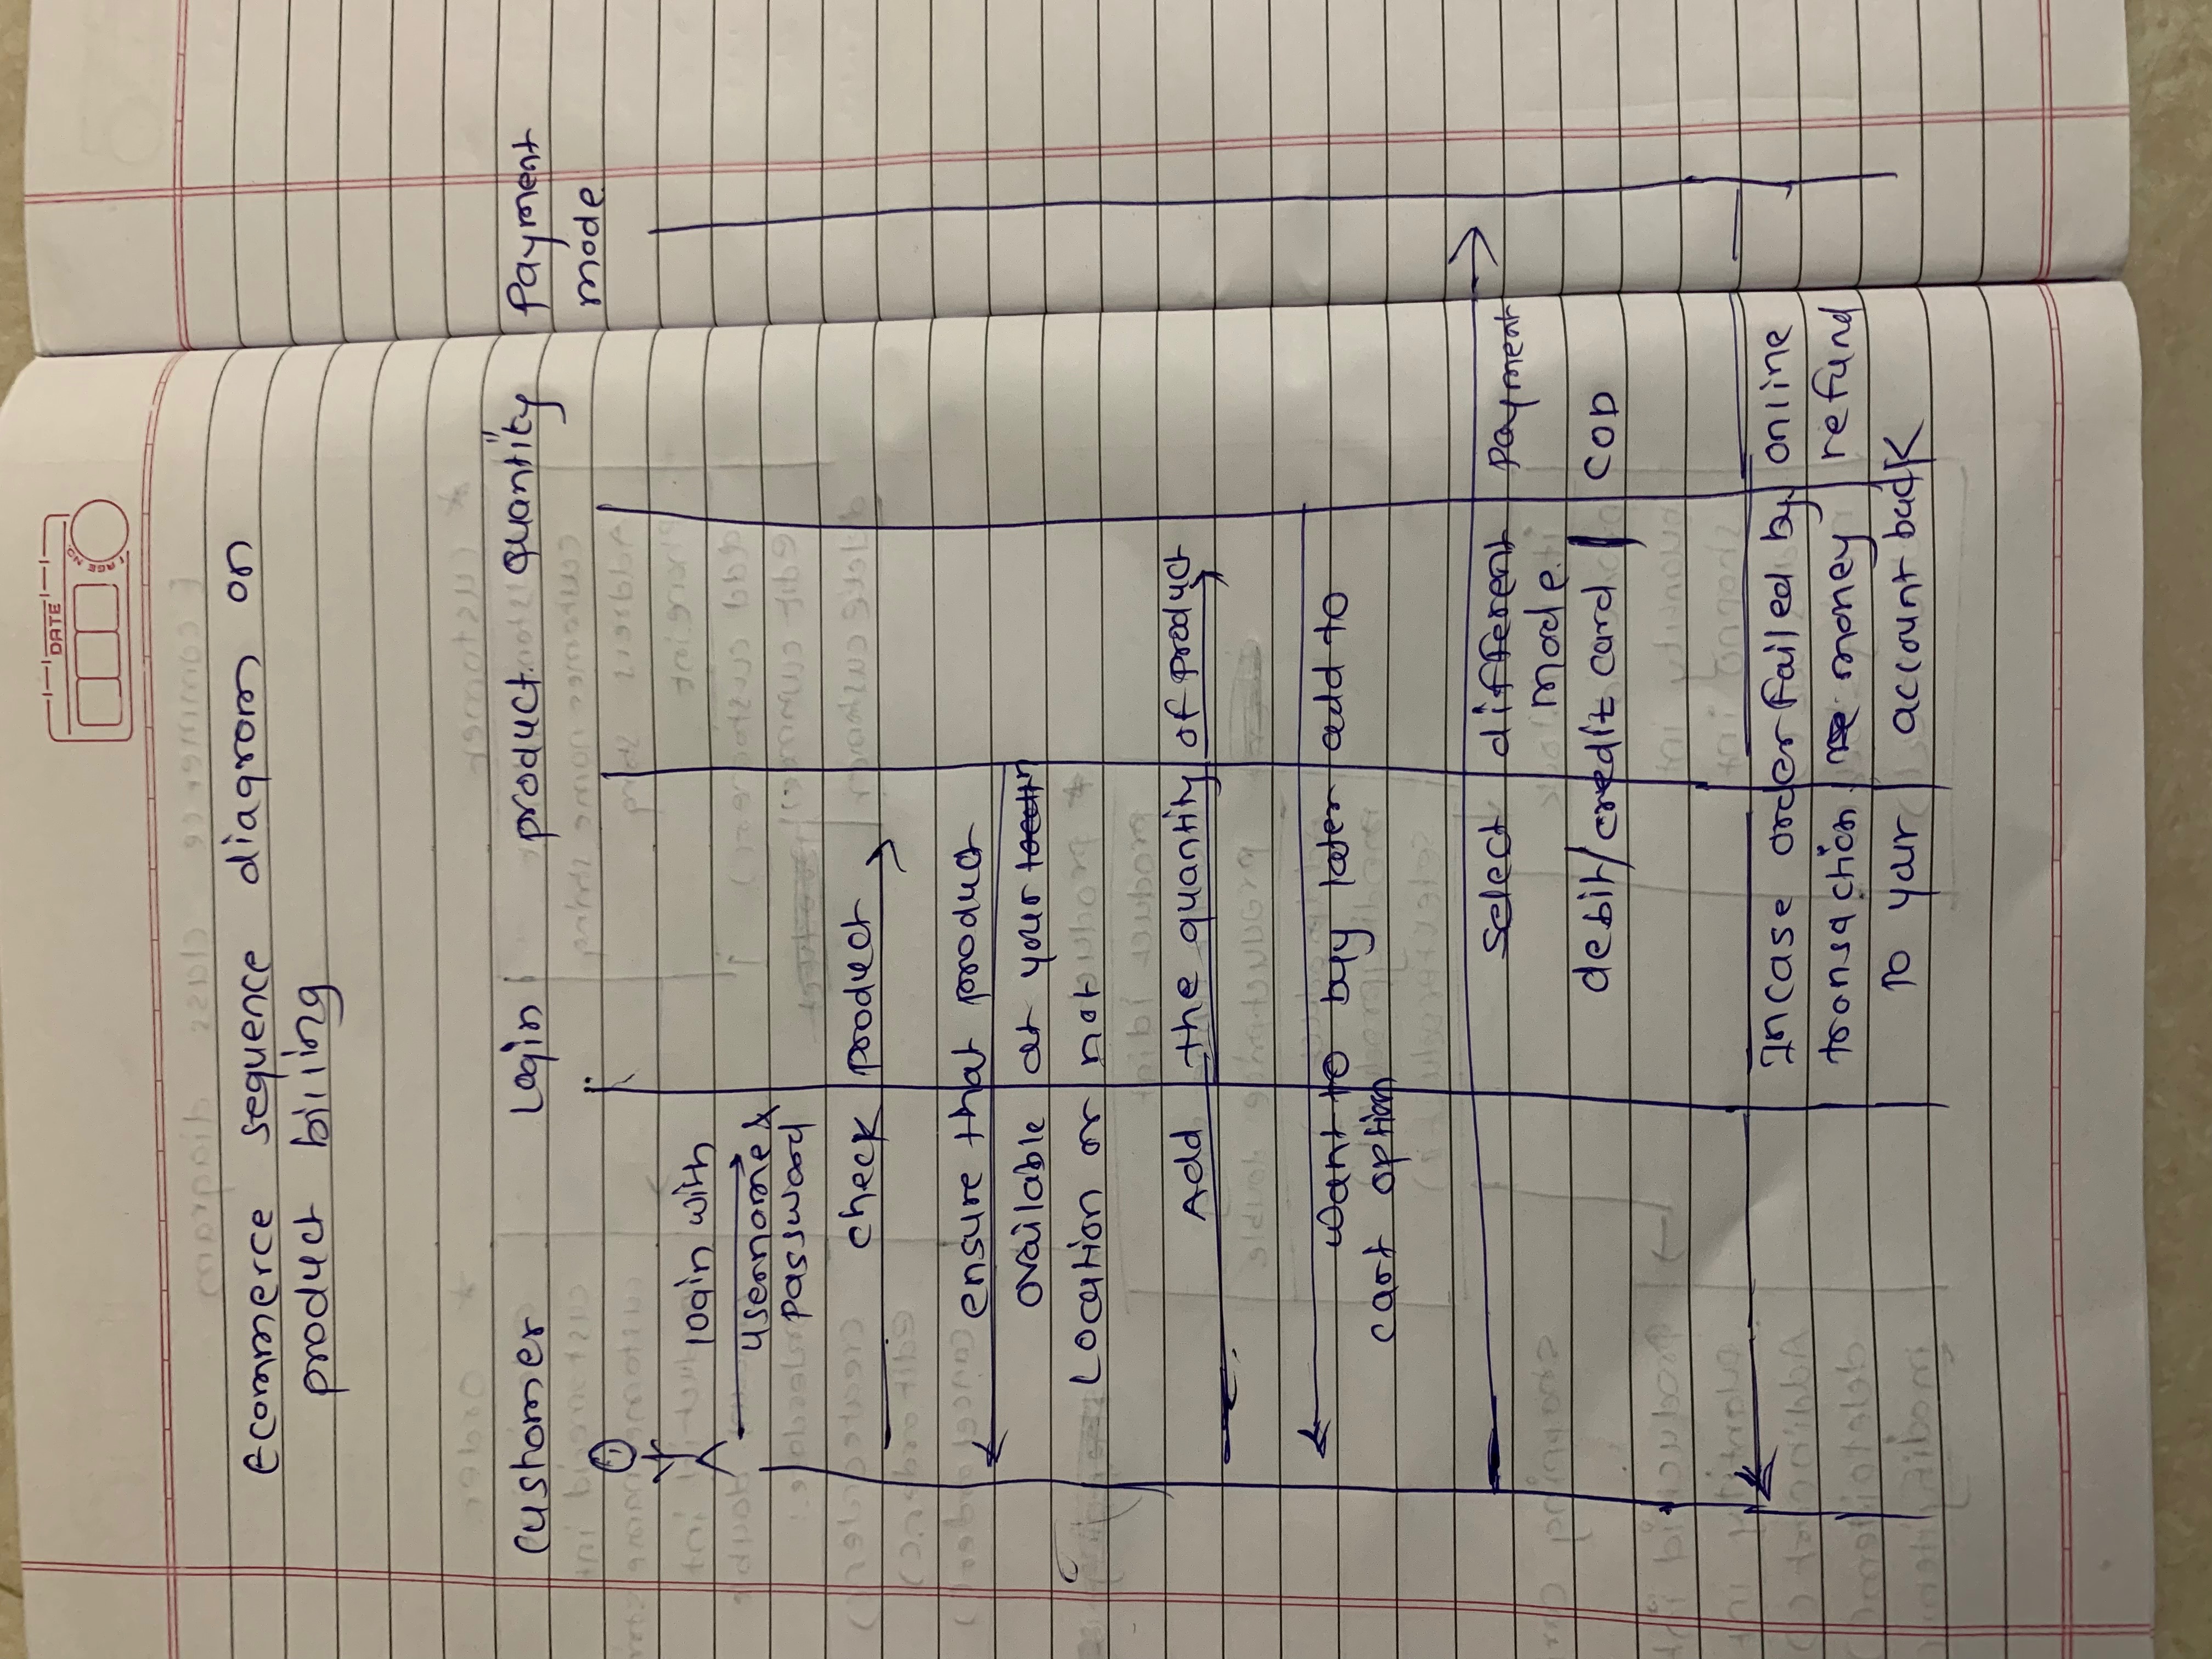 DATE
PAGE NO.
Ecommerce sequence diagram on
product billing
customer Login product quantity Payment
mode
login with
username &
password
check product
ensure that product
available at your
Location or not
Add the quantity of product
want to buy later add to
cart option
select different payment
mode
debit/credit card | COD
Incase order failed by online
transaction money refund
To your account back